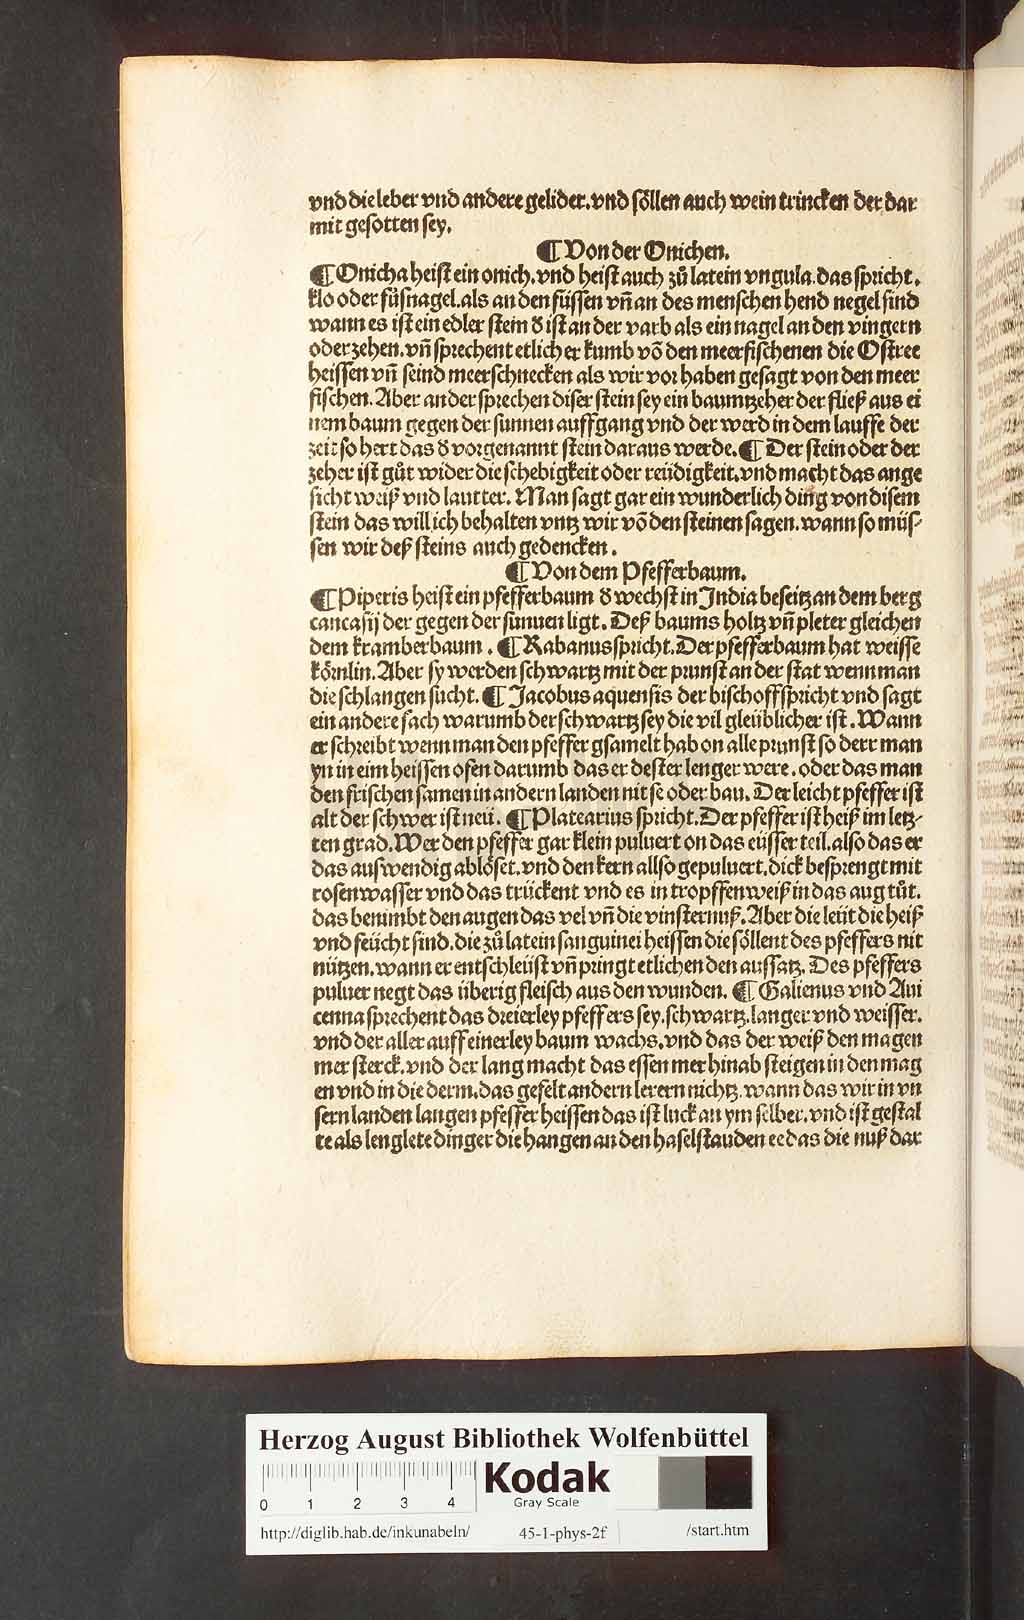 vnd die leber vnd andere gelider. vnd söllen auch wein trincken der dar
mit gesotten sey.
¶ Von der Onichen.
¶ Onicha heist ein onich. vnd heist auch zů latein vngula. das spricht.
klo oder füsnagel. als an den füssen vñ an des menschen hend negel sind
wann es ist ein edler stein d̕ ist an der varb als ein nagel an den vingern
oder zehen. vñ sprechent etlich er kumb võ den meerfischenen die Ostree
heissen vñ seind meerschnecken als wir vor haben gesagt von den meer
fischen. Aber ander sprechen diser stein sey ein baumtzeher der fließ aus ei
nem baum gegen der sunnen auffgang vnd der werd in dem lauffe der
zeit so hert das d̕ vorgenannt stein daraus werde. ¶ Der stein oder der
zeher ist gůt wider die schebigkeit oder reüdigkeit. vnd macht das ange
sicht weiß vnd lautter. Man sagt gar ein wunderlich ding von disem
stein das will ich behalten vntz wir võ den steinen sagen. wann so müs-
sen wir deß steins auch gedencken.
¶ Von dem Pfefferbaum.
¶ Piperis heist ein pfefferbaum d̕ wechst in India beseitz an dem berg
cancasij der gegen der sunnen ligt. Deß baums holtz vñ pleter gleichen
dem kramberbaum. ¶ Rabanus spricht. Der pfefferbaum hat weisse
körnlin. Aber sy werden schwartz mit der prunst an der stat wenn man
die schlangen sucht. ¶ Jacobus aquensis der bischoff spricht vnd sagt
ein andere sach warumb der schwartz sey die vil gleüblicher ist. Wann
er schreibt wenn man den pfeffer gsamelt hab on alle prunst so derr man
yn in eim heissen ofen darumb das er dester lenger were. oder das man
den frischen samen in andern landen nit se oder bau. Der leicht pfeffer ist
alt der schwer ist neü. ¶ Platearius spricht. Der pfeffer ist heiß im letz-
ten grad. Wer den pfeffer gar klein puluert on das eüsser teil. also das er
das auswendig ablöset. vnd den kern allso gepuluert. dick besprengt mit
rosenwasser vnd das trückent vnd es in tropffenweiß in das aug tůt.
das benimbt den augen das vel vñ die vinsternuß. Aber die leüt die heiß
vnd feücht sind. die zů latein sanguinei heissen die söllent des pfeffers nit
nützen. wann er entschleüst vñ pringt etlichen den aussatz. Des pfeffers
puluer negt das überig fleisch aus den wunden. ¶ Galienus vnd Aui
cenna sprechent das dreierley pfeffers sey. schwartz. langer vnd weisser.
vnd der aller auff einerley baum wachs. vnd das der weiß den magen
mer sterck. vnd der lang macht das essen mer hinab steigen in den mag
en vnd in die derm. das gefelt andern lerern nichtz. wann das wir in vn
sern landen langen pfeffer heissen das ist luck an ym selber. vnd ist gestal
te als lenglete dinger die hangen an den haselstauden ee das die nuß dar
Herzog August Bibliothek Wolfenbüttel
0 1 2 3 4
Kodak
Gray Scale
http://diglib.hab.de/inkunabeln/ 45-1-phys-2f /start.htm